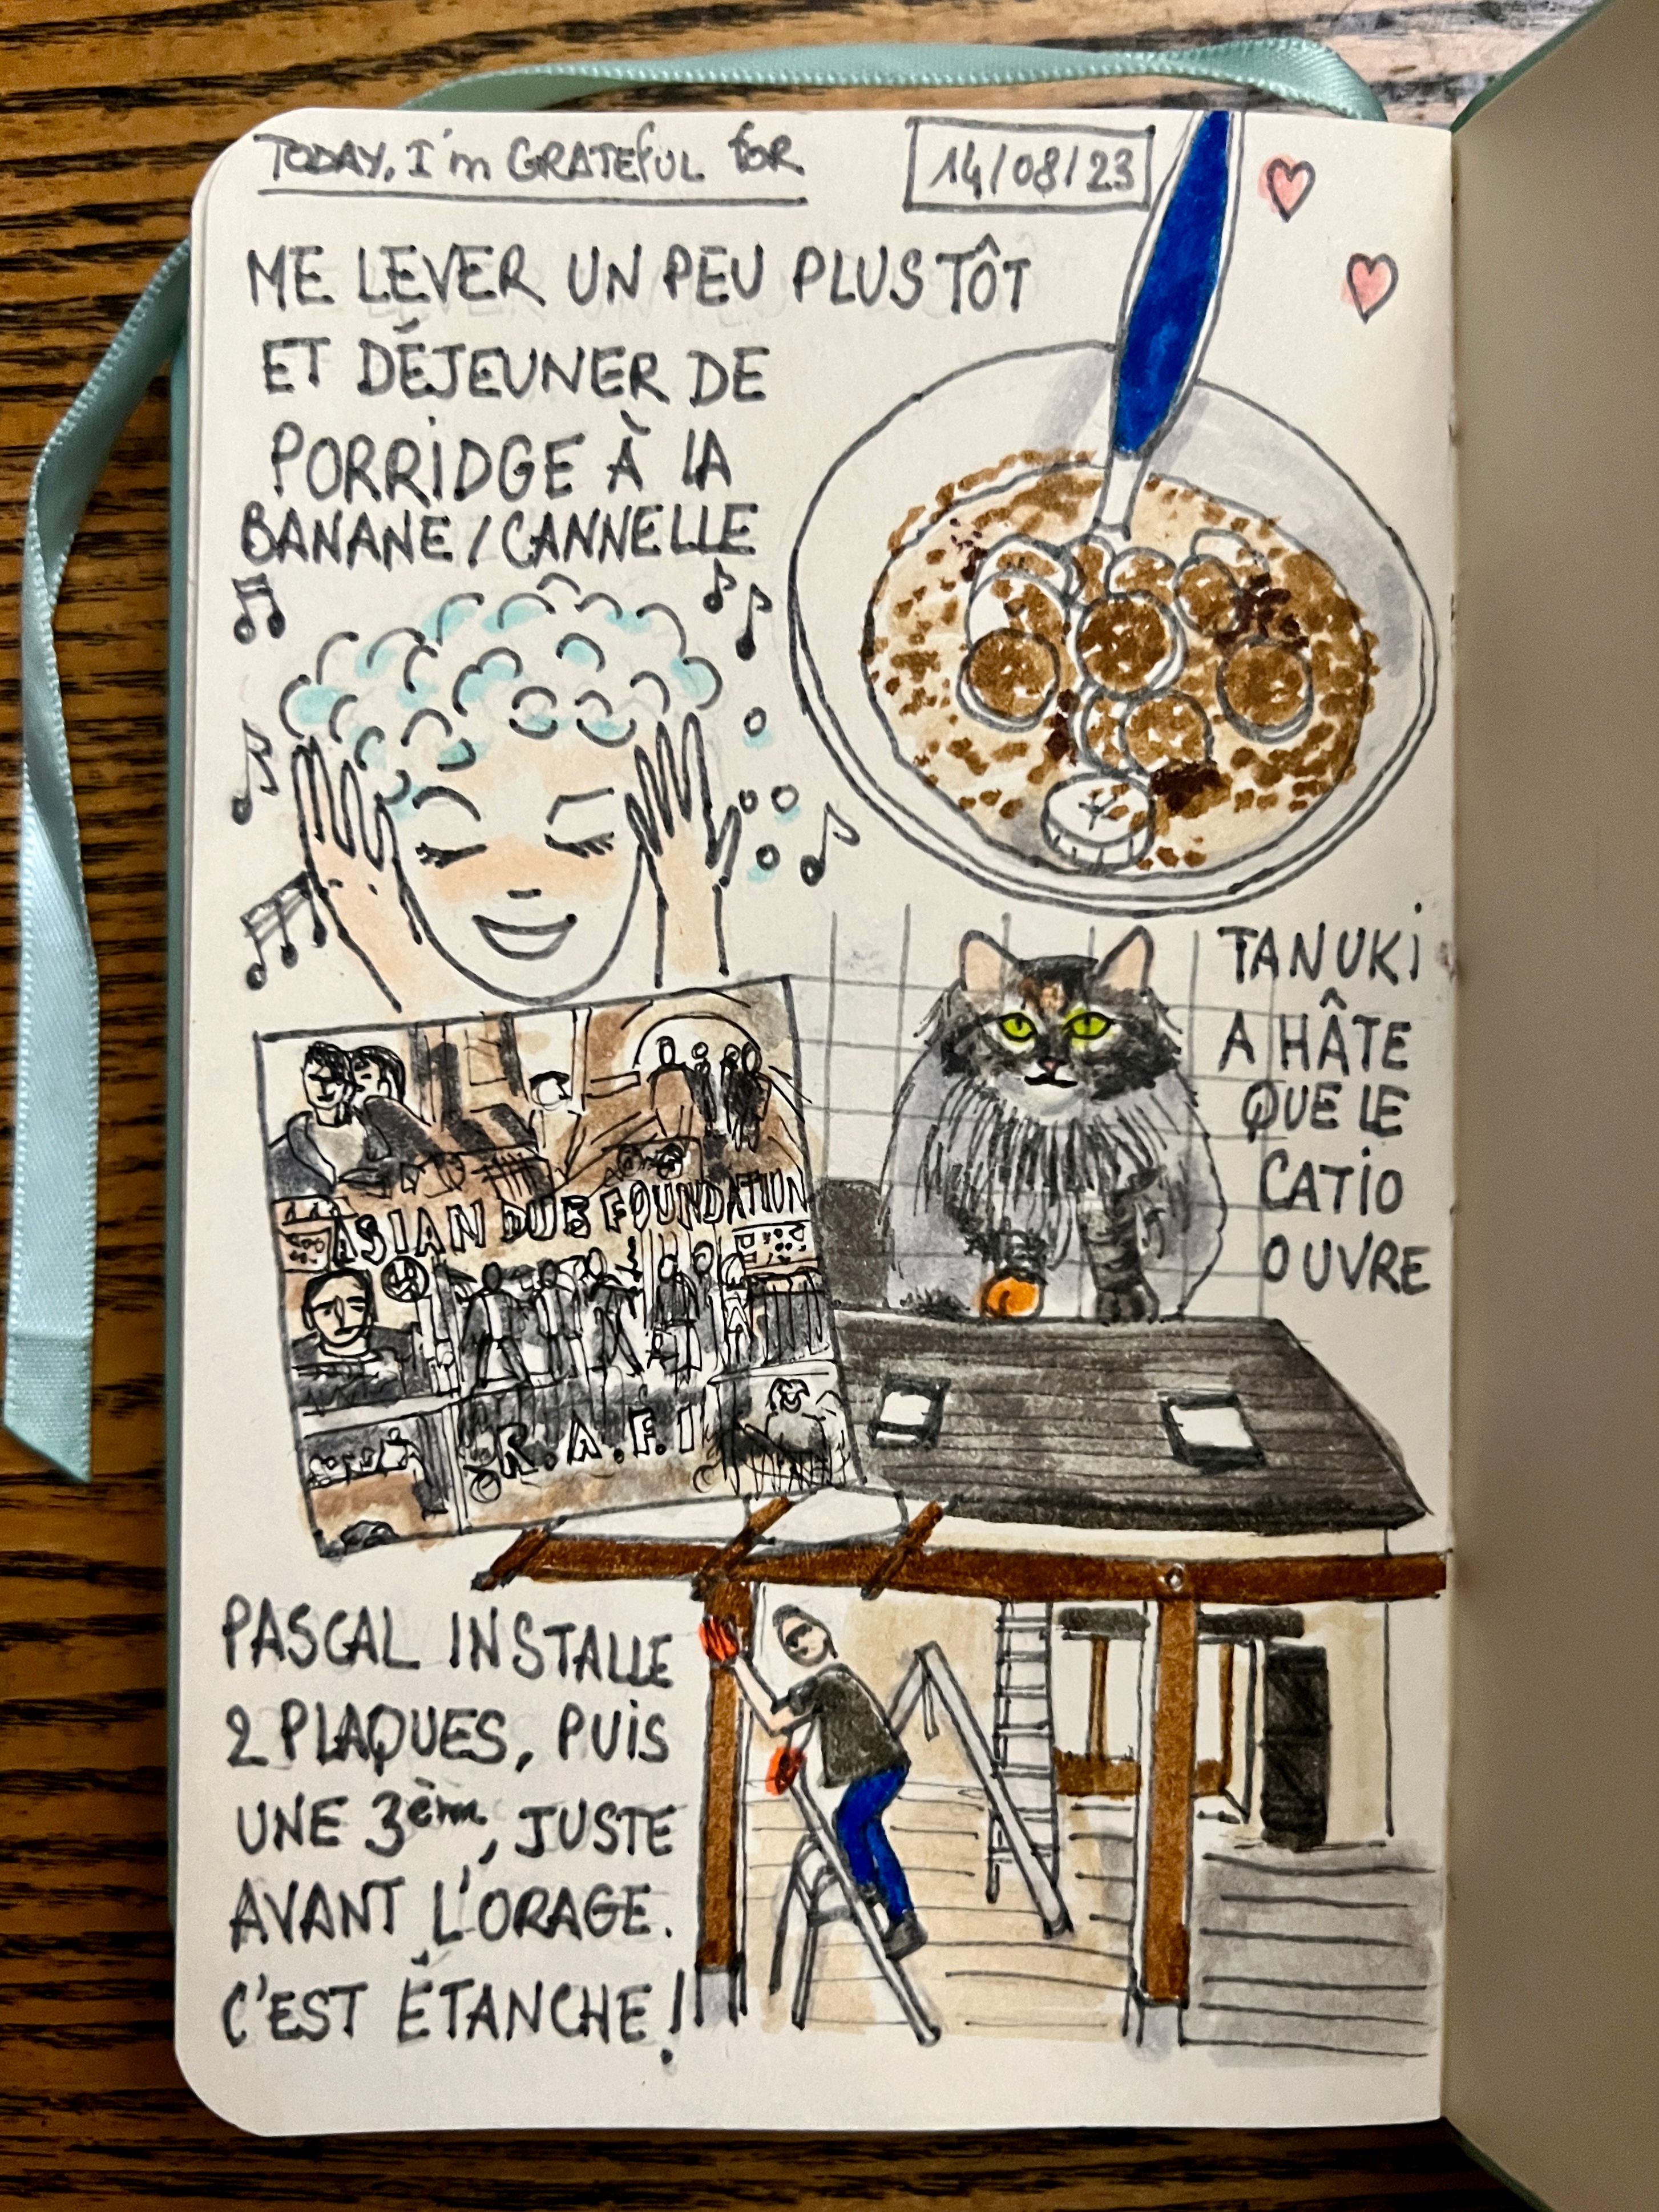 TODAY, I'm GRATEFUL FOR
14/08/23
ME LEVER UN PEU PLUS TÔT
ET DÉJEUNER DE
PORRIDGE À LA
BANANE / CANNELLE
TANUKI
A HÂTE
QUE LE
CATIO
OUVRE
ASIAN DUB FOUNDATION
R.A.F.I
PASCAL INSTALLE
2 PLAQUES, PUIS
UNE 3èm, JUSTE
AVANT L'ORAGE.
C'EST ÉTANCHE !